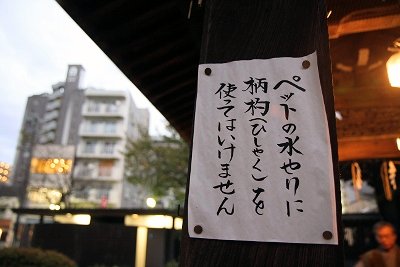 ペットの水やりに
柄杓(ひしゃく)を
使てはいけません